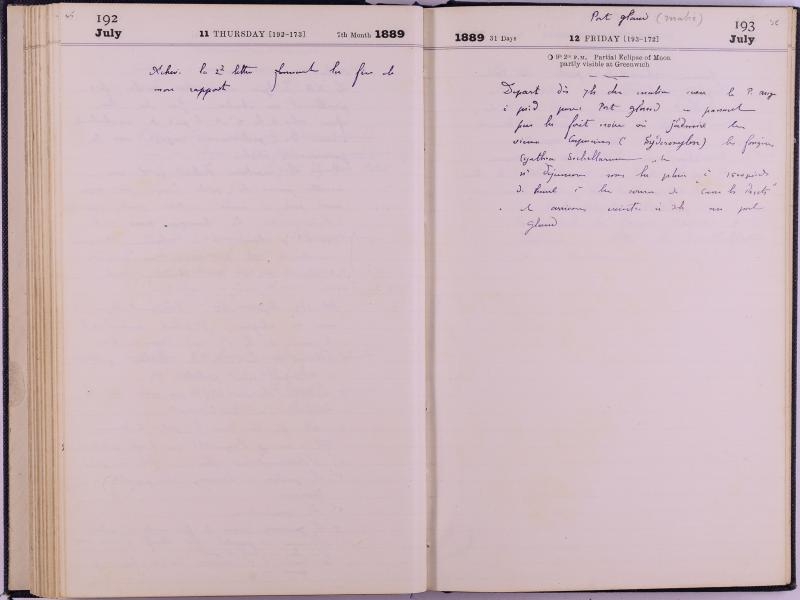 192
July
11 THURSDAY [192-173]
7th Month 1889
la 2e lettre formant la fin de
mon rapport
Port glaud (Mahé)
193
July
1889 31 Days
12 FRIDAY [193-172]
9h 2m P.M. Partial Eclipse of Moon
partly visible at Greenwich
Depart dès 7h du matin avec le P.
à pied pour Port glaud en passant
par la forêt noire où j'admire les
vieux Capucins ( Sydéroxylon) les fougères
Cyathea Sechellarum
déjeunons sous la pluie à
de haut à la source de
et arrivons ensuite à 2h au port
Glaud